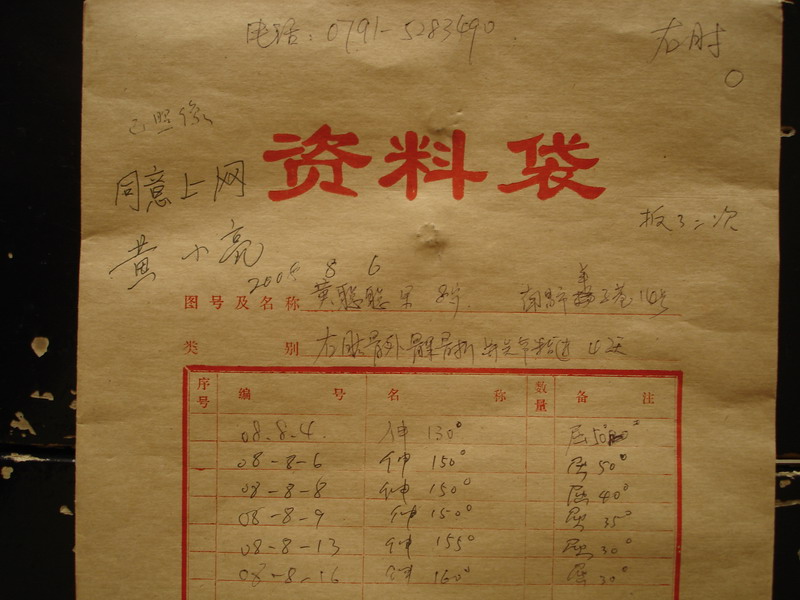 电话：0791-5283490
右肘
已照像
资料袋
同意上网
扳了二次
黄小亮
2008 8 6
图号及名称 黄聪聪 男 8岁
类别 右肱骨外髁骨折
序号 编号 名称 数量 备注
08-8-4 伸 130° 屈 50°
08-8-6 伸 150° 屈 50°
08-8-8 伸 150° 屈 40°
08-8-9 伸 150° 屈 35°
08-8-13 伸 155° 屈 30°
08-8-16 伸 160° 屈 30°